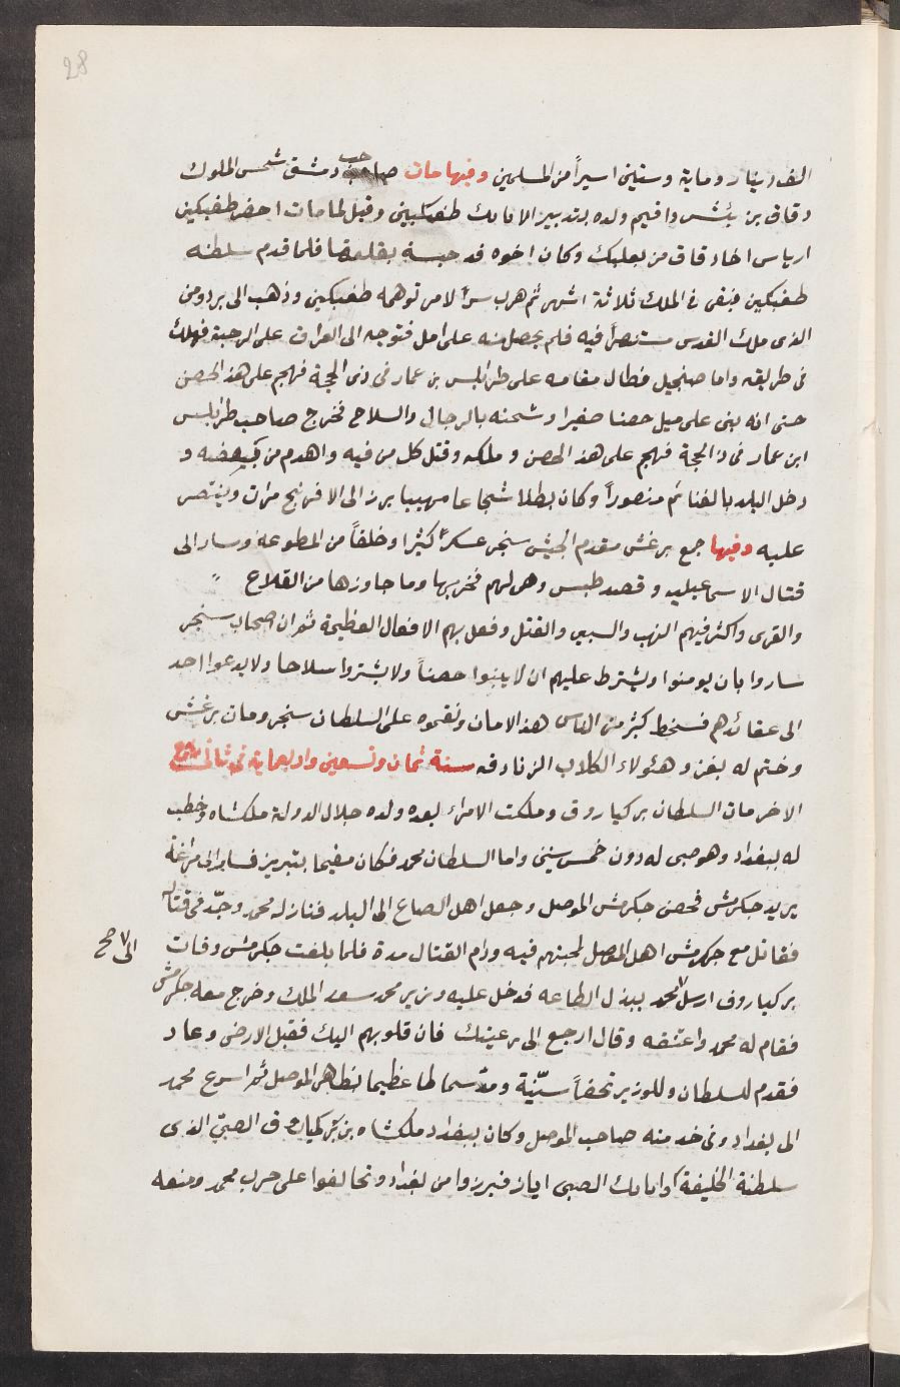 28
الف دينار وماية وستين اسيراً من المسلمين وفيها مات صاحب دمشق شمس الملوك
دقاق بن تتش واقيم ولده بتدبير الاتابك طغتكين وقيل لما مات احضر طغتكين
ارتاس اخا دقاق من بعلبك وكان اخوه قد حبسه بقلعتها فلما قدم سلطنه
طغتكين فبقى فى الملك ثلاثة اشهر ثم هرب سراً لامر توهمه طغتكين وذهب الى بردوين
الذى ملك القدس مستنصراً فيه فلم يحصل منه على امل فتوجه الى العراق على الرحبة فهلك
فى طريقه واما صنجيل فطال مقامه على طرابلس بن عمار فى ذى الحجة فهجم على هذا الحصن
حتى انه بنى على ميل حصنا صغيرا وشحنه بالرجال والسلاح فخرج صاحب طرابلس
ابن عمار فى ذا الحجة فهجم على هذا الحصن وملكه وقتل كل من فيه واهدم من بعضه و
دخل البلد بالغنائم منصوراً وكان بطلا شجاعا مهيبا برز الى الافرنج مرات وينتصر
عليه وفيها جمع برغش مقدم الجيش سنجر عسكراً كثيرا وخلقاً من المطوعة وسار الى
قتال الاسماعيلية وقصد طبس وهى لهم فخربها وما جاورها من القلاع
والقرى واكثر فيهم النهب والسبى والقتل وفعل بهم الافعال العظيمة ثم ان اصحاب سنجر
ساروا بان يومنوا ويشترط عليهم ان لا يبنوا حصناً ولا يشتروا سلاحا ولا يدعوا احد
الى عقائدهم فسخط كثير من الناس هذا الامان ونقموه على السلطان سنجر ومات برغش
وختم له بغزو هئولاء الكلاب الزنادقه سنة ثمان وتسعين واربعماية فى ثانى ربيع
الاخر مات السلطان بركياروق وملكت الامراء بعده ولده جلال الدولة ملكشاه وخطب
له ببغداد وهو صبى له دون خمس سنين واما السلطان محمد فكان مقيما بتبريز فسار الى مراغة
يريد جكرمش فحصن جكرمش الموصل وجعل اهل الضياع الى البلد فنازله محمد وجدّ فى قتاله
فقاتل مع جكرمش اهل الموصل لمحبتهم فيه ودام القتال مدة فلما بلغت جكرمش وفات
الى صح
بركياروف ارسل محمد ببذل الطاعه فدخل عليه وزير محمد سعد الملك وخرج معه جكرمش
فقام له محمد واعتنقه وقال ارجع الى رعيتك فان قلوبهم اليك فقبل الارض وعاد
فقدم للسلطان وللوزير تحفاً سنّية ومدّ سماطا عظيما بظاهر الموصل ثم اسرع محمد
الى بغداد وفى خدمته صاحب الموصل وكان ببغداد ملكشاه بن بركياروق الصبىّ الذى
سلطنه الخليفة واتابك الصبى اياز فبرزوا من بغداد وتحالفوا على حرب محمد ومنعه